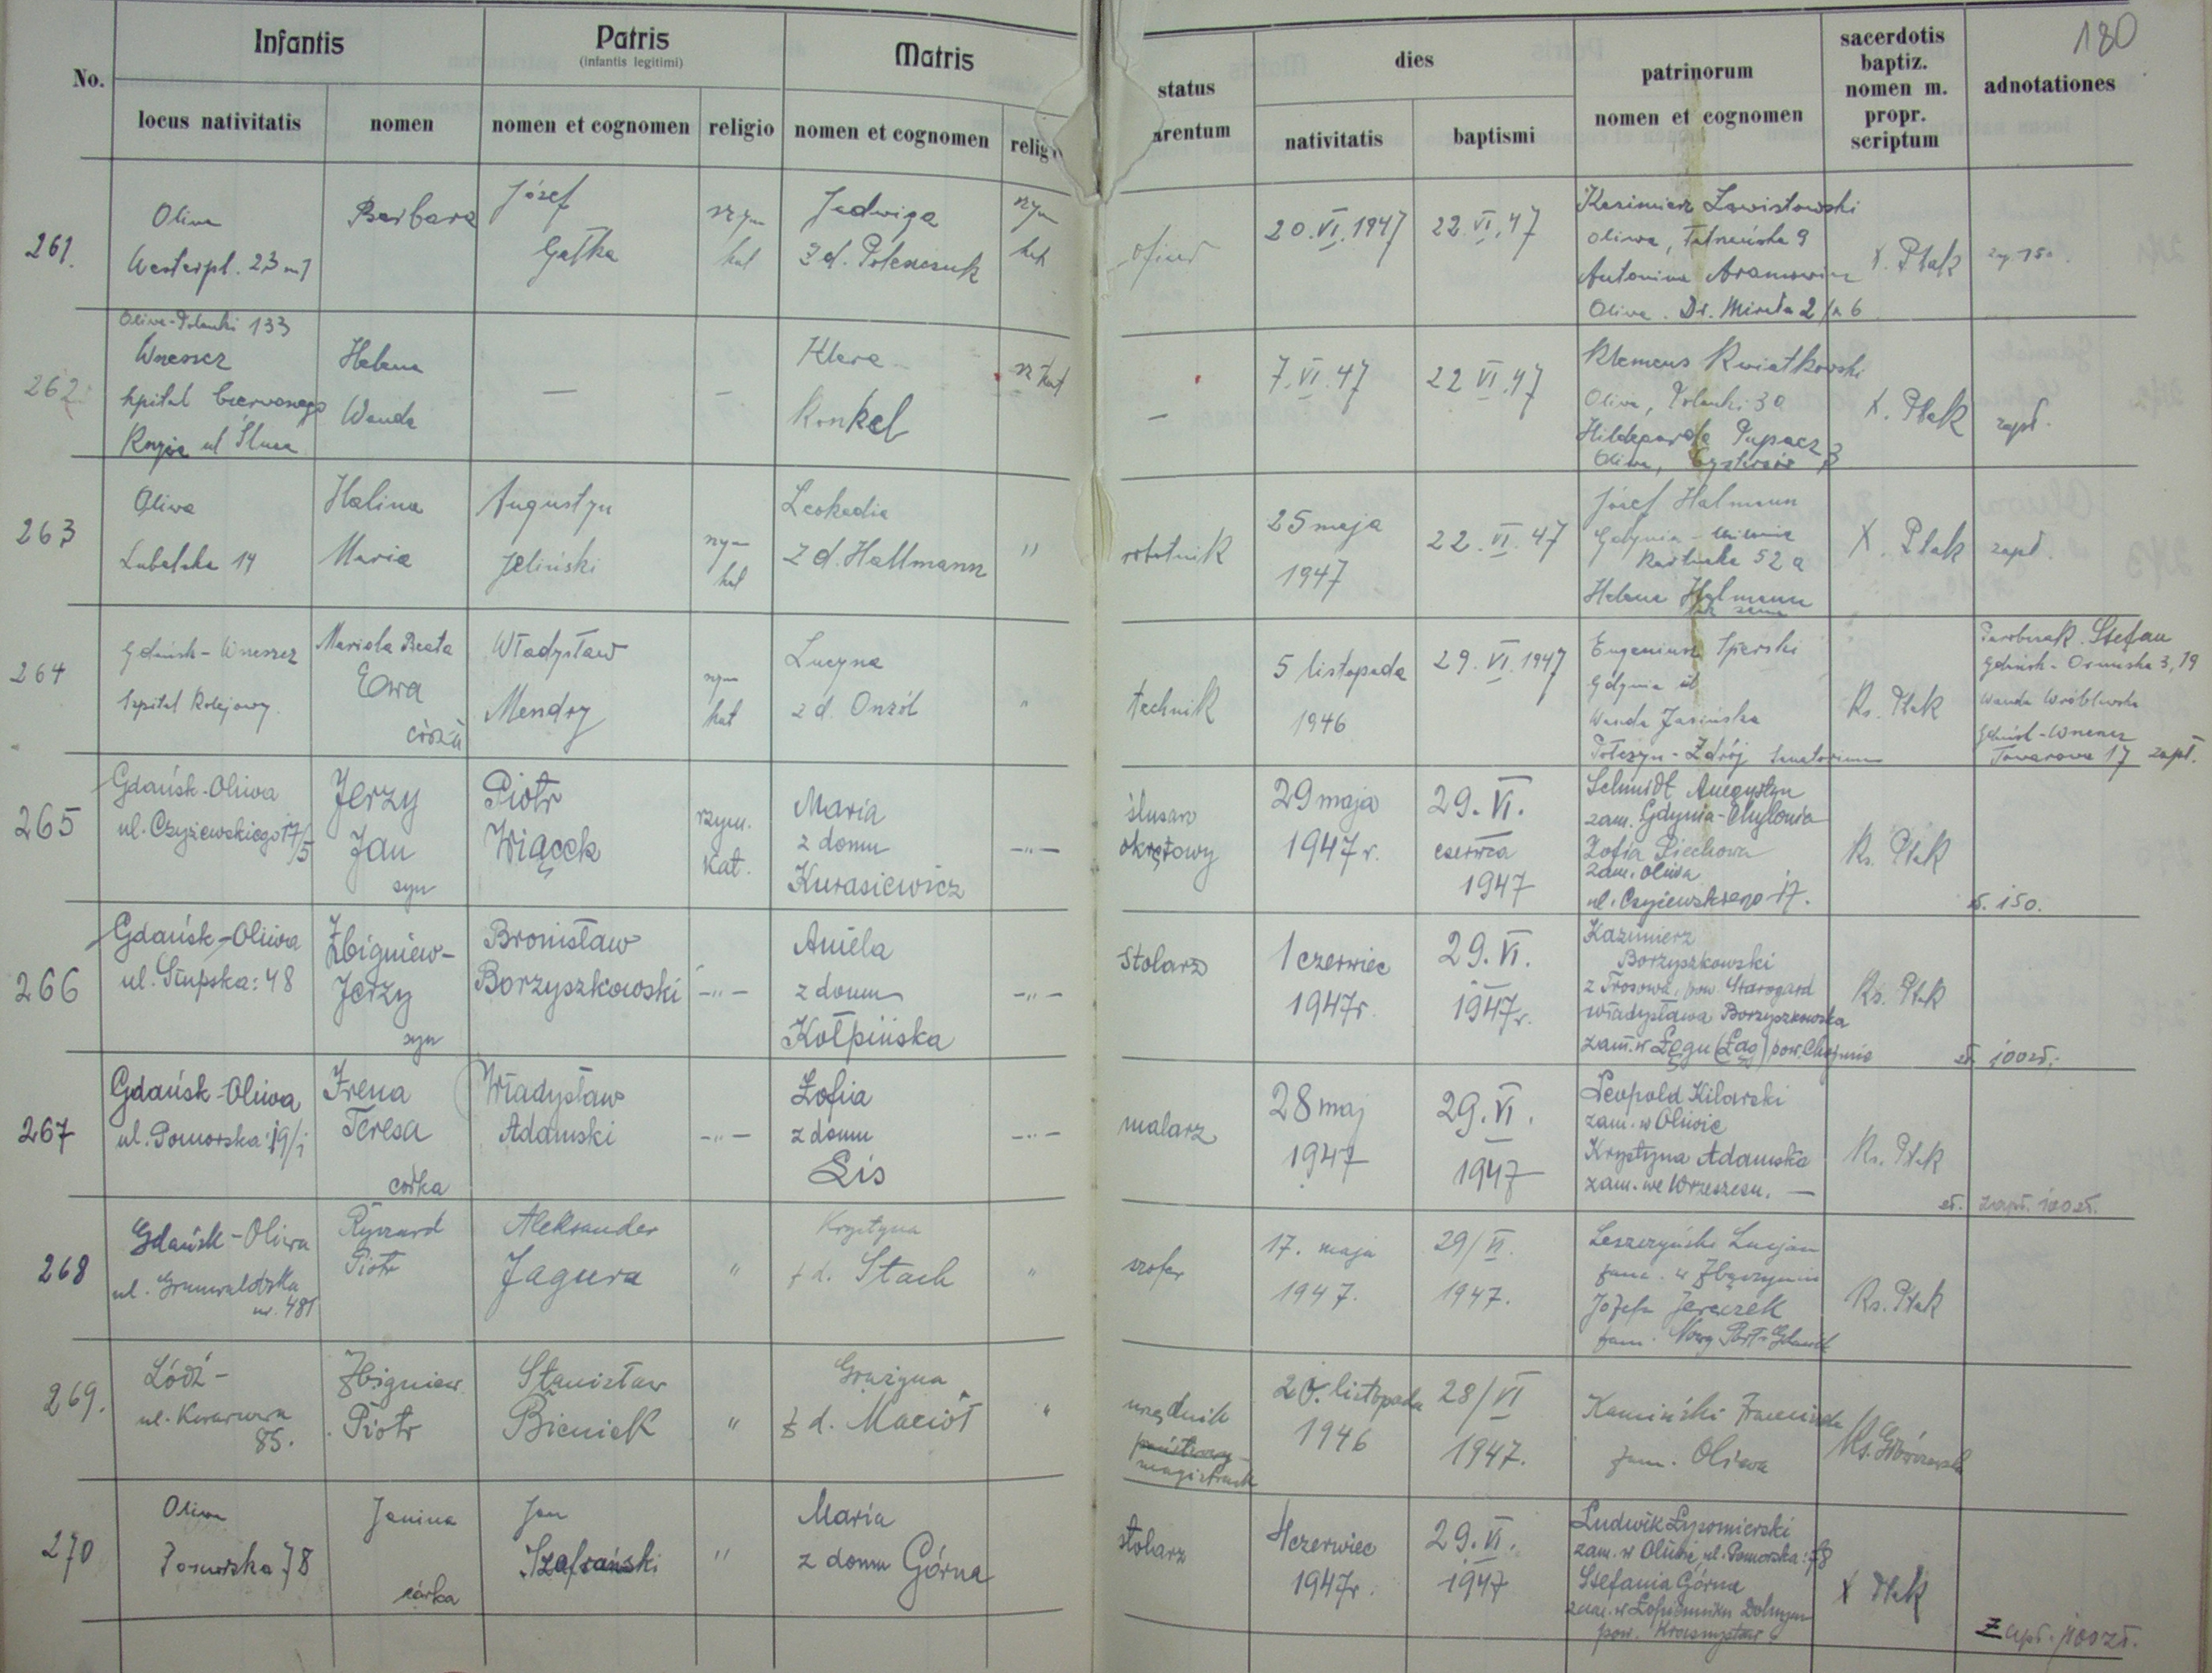 180
No.
Infantis
locus nativitatis
nomen
Patris
(infantis legitimi)
nomen et cognomen
religio
Matris
nomen et cognomen
religi
status
arentum
dies
nativitatis
baptismi
patrinorum
nomen et cognomen
sacerdotis
baptiz.
nomen m.
propr.
scriptum
adnotationes
261.
Oliwa
Westerpl. 23 m 7
Barbara
Józef
Gałka
rzym
kat
Jadwiga
z d.
rzym
kat
20.VI.1947
22.VI.47
Kazimierz Zawistowski
Oliwa, Tatrzańska 9
Antonina
Oliwa. Dr. Mirała 2/m 6
X. Ptak
262
Oliwa-Polanki 133
Wrzeszcz
szpital Czerwonego
Krzyża ul
Helena
Wanda
—
—
Klara
Konkel
rz kat
—
7.VI.47
22 VI.47
Klemens Kwiatkowski
Oliwa, Polanki 30
Hildegarda
Oliwa, Cystersów 3
X. Ptak
zapł.
263
Oliwa
Lubelska 14
Halina
Maria
Augustyn
Jeliński
rzym
kat
Leokadia
z d. Hallmann
"
robotnik
25 maja
1947
22.VI.47
Józef Halmann
Gdynia -
Kartuska 52 a
Helena Halmann
X. Ptak
zapł.
264
Gdańsk - Wrzeszcz
Szpital Kolejowy.
Mariola Beata
Ewa
córka
Władysław
Mendry
rzym
kat
Lucyna
z d.
"
technik
5 listopada
1946
29.VI.1947
Eugeniusz
Gdynia ul
Wanda Jasińska
Połczyn - Zdrój Sanatorium
Ks. Ptak
Parobczak Stefan
Gdańsk - 3, 19
Wanda Wróblewska
Gdańsk - Wrzeszcz
Towarowa 17 zapł.
265
Gdańsk-Oliwa
ul. Czyżewskiego 17/5
Jerzy
Jan
syn
Piotr
Wiącek
rzym.
kat.
Maria
z domu
Kurasiewicz
—„—
ślusarz
okrętowy
29 maja
1947 r.
29.VI.
czerwca
1947
Schmidt Augustyn
zam. Gdynia-Chylonia
Zofia Piechowa
zam. Oliwa
ul. Czyżewskiego 17.
Ks. Ptak
zł. 150.
266
Gdańsk-Oliwa
ul. Słupska: 48
Zbigniew-
Jerzy
syn
Bronisław
Borzyszkowski
—„—
Aniela
z domu
Kołpińska
—„—
Stolarz
1 czerwiec
1947r.
29.VI.
1947r.
Kazimierz
Borzyszkowski
z Trosowa, pow. Starogard
Władysława Borzyszkowska
zam. w Łęgu (Łąg) pow. Chojnice
Ks. Ptak
zł. 100 zł.
267
Gdańsk-Oliwa
ul. Pomorska: 19/1
Irena
Teresa
córka
Władysław
Adamski
—„—
Zofia
z domu
Lis
—„—
malarz
28 maj
1947
29.VI.
1947
Leopold Kilarski
zam. w Oliwie
Krystyna Adamska
zam. we Wrzeszczu. —
Ks. Ptak
zł. zapł. 100 zł.
268
Gdańsk-Oliwa
ul. Grunwaldzka
nr. 481
Ryszard
Piotr
Aleksander
Jagura
"
Krystyna
z d. Stach
"
szofer
17. maja
1947.
29/VI.
1947.
Leszczyński Lucjan
zam. w Zbąszyniu
Józefa Jereczek
zam. Nowy Port-Gdańsk
Ks. Ptak
269.
Łódź-
ul.
85.
Zbigniew
Piotr
Stanisław
Bieniek
"
Grażyna
z d. Maciół
"
urzędnik
magistrack
20. listopada
1946
28/VI
1947.
Kamiński Franciszek
zam. Oliwa
Ks.
270
Oliwa
Pomorska 78
Janina
córka
Jan
Szafrański
"
Maria
z domu Górna
stolarz
4 czerwiec
1947r.
29.VI.
1947
Ludwik Żypomierski
zam. w Oliwie, ul. Pomorska: 78
Stefania Górna
zam. w Łopienniku Dolnym
pow. Krasnystaw
X Ptak
Zapł. 100 zł.